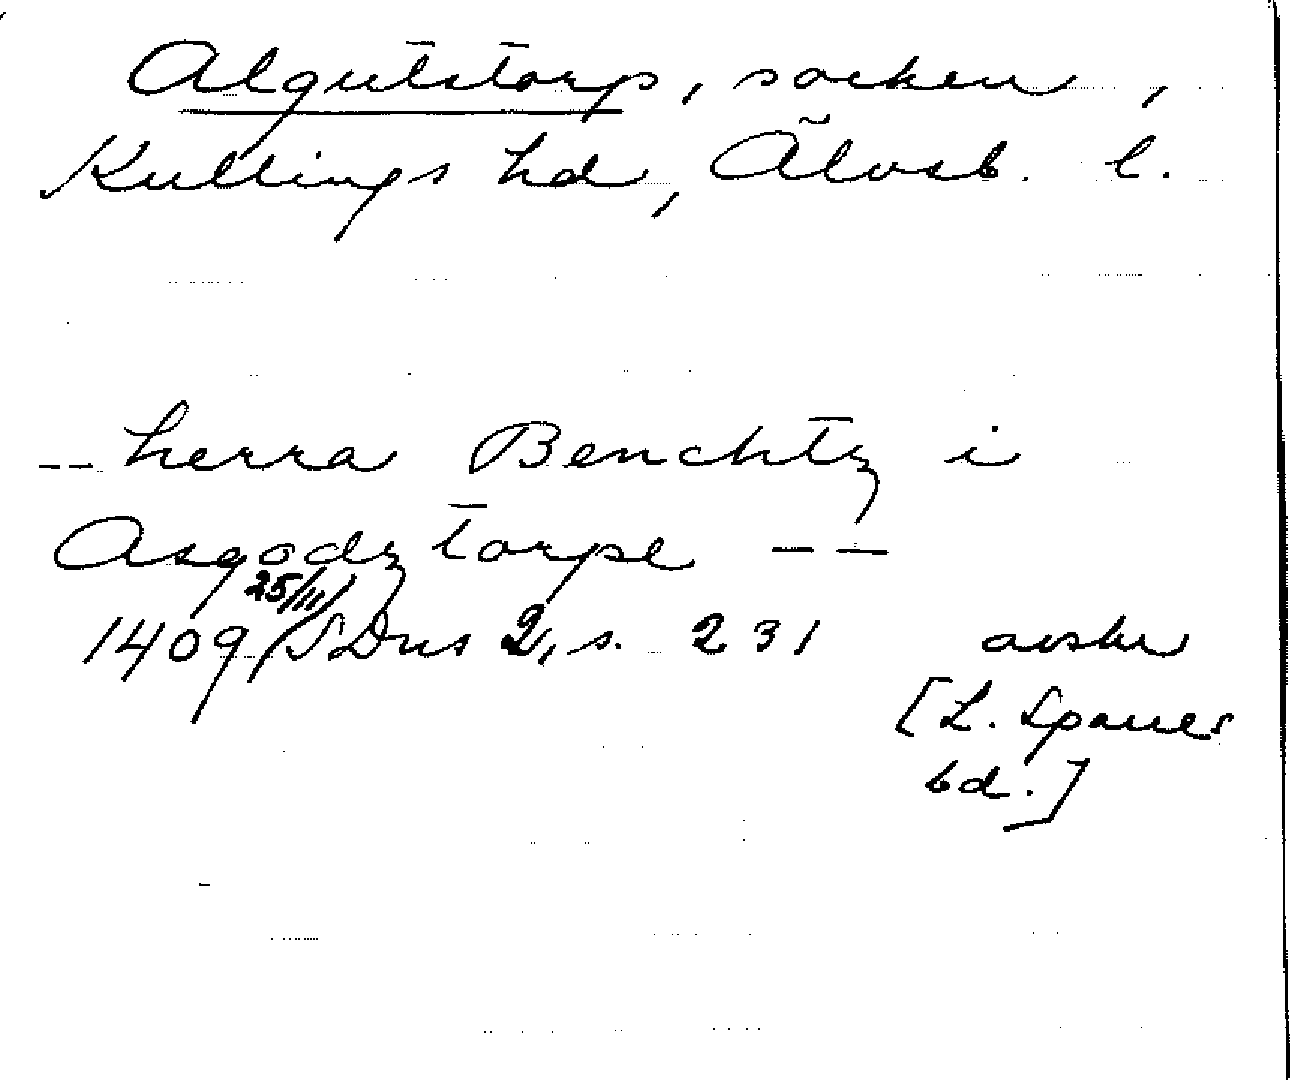 Algutstorp, socken,
Kullings hd, Älvsb. l.
-- herra Benchtz i
Asgodztorpe --
25/III
1409 SDns 2, s. 231 avskr
[L. Sparres
bd.]